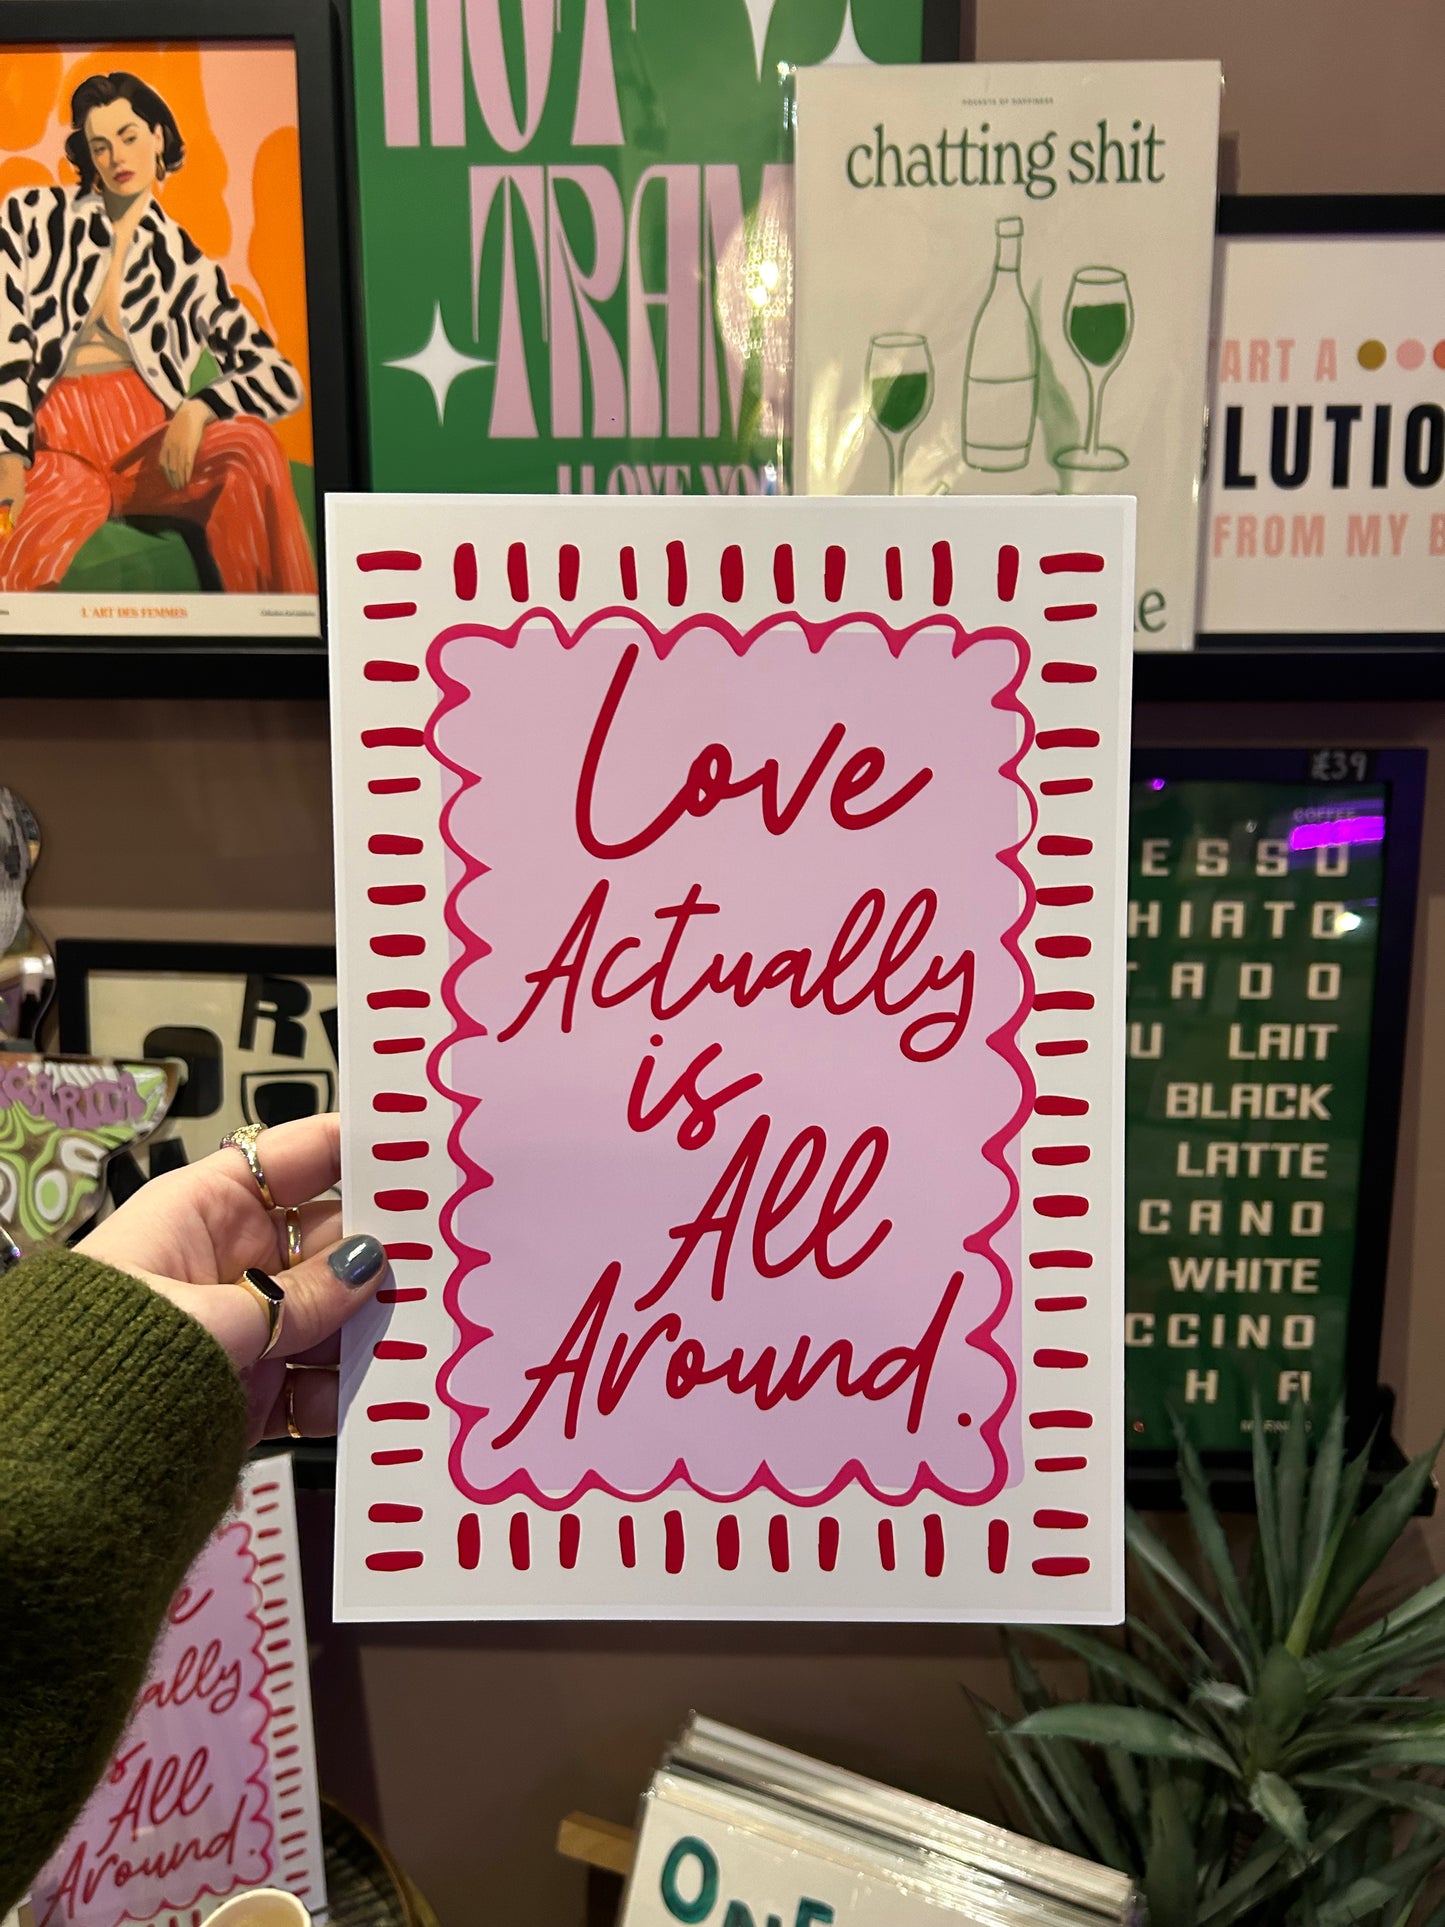 HOT
TRAM
I LOVE YOU
POCKETS OF HAPPINESS
chatting shit
ART A
LUTIO
FROM MY B
L'ART DES FEMMES
Love
Actually
is
All
Around.
£39
COFFEE
ESSO
HIATO
TADO
U LAIT
BLACK
LATTE
CANO
WHITE
CCINO
H FI
ally
is
All
Around.
ONE